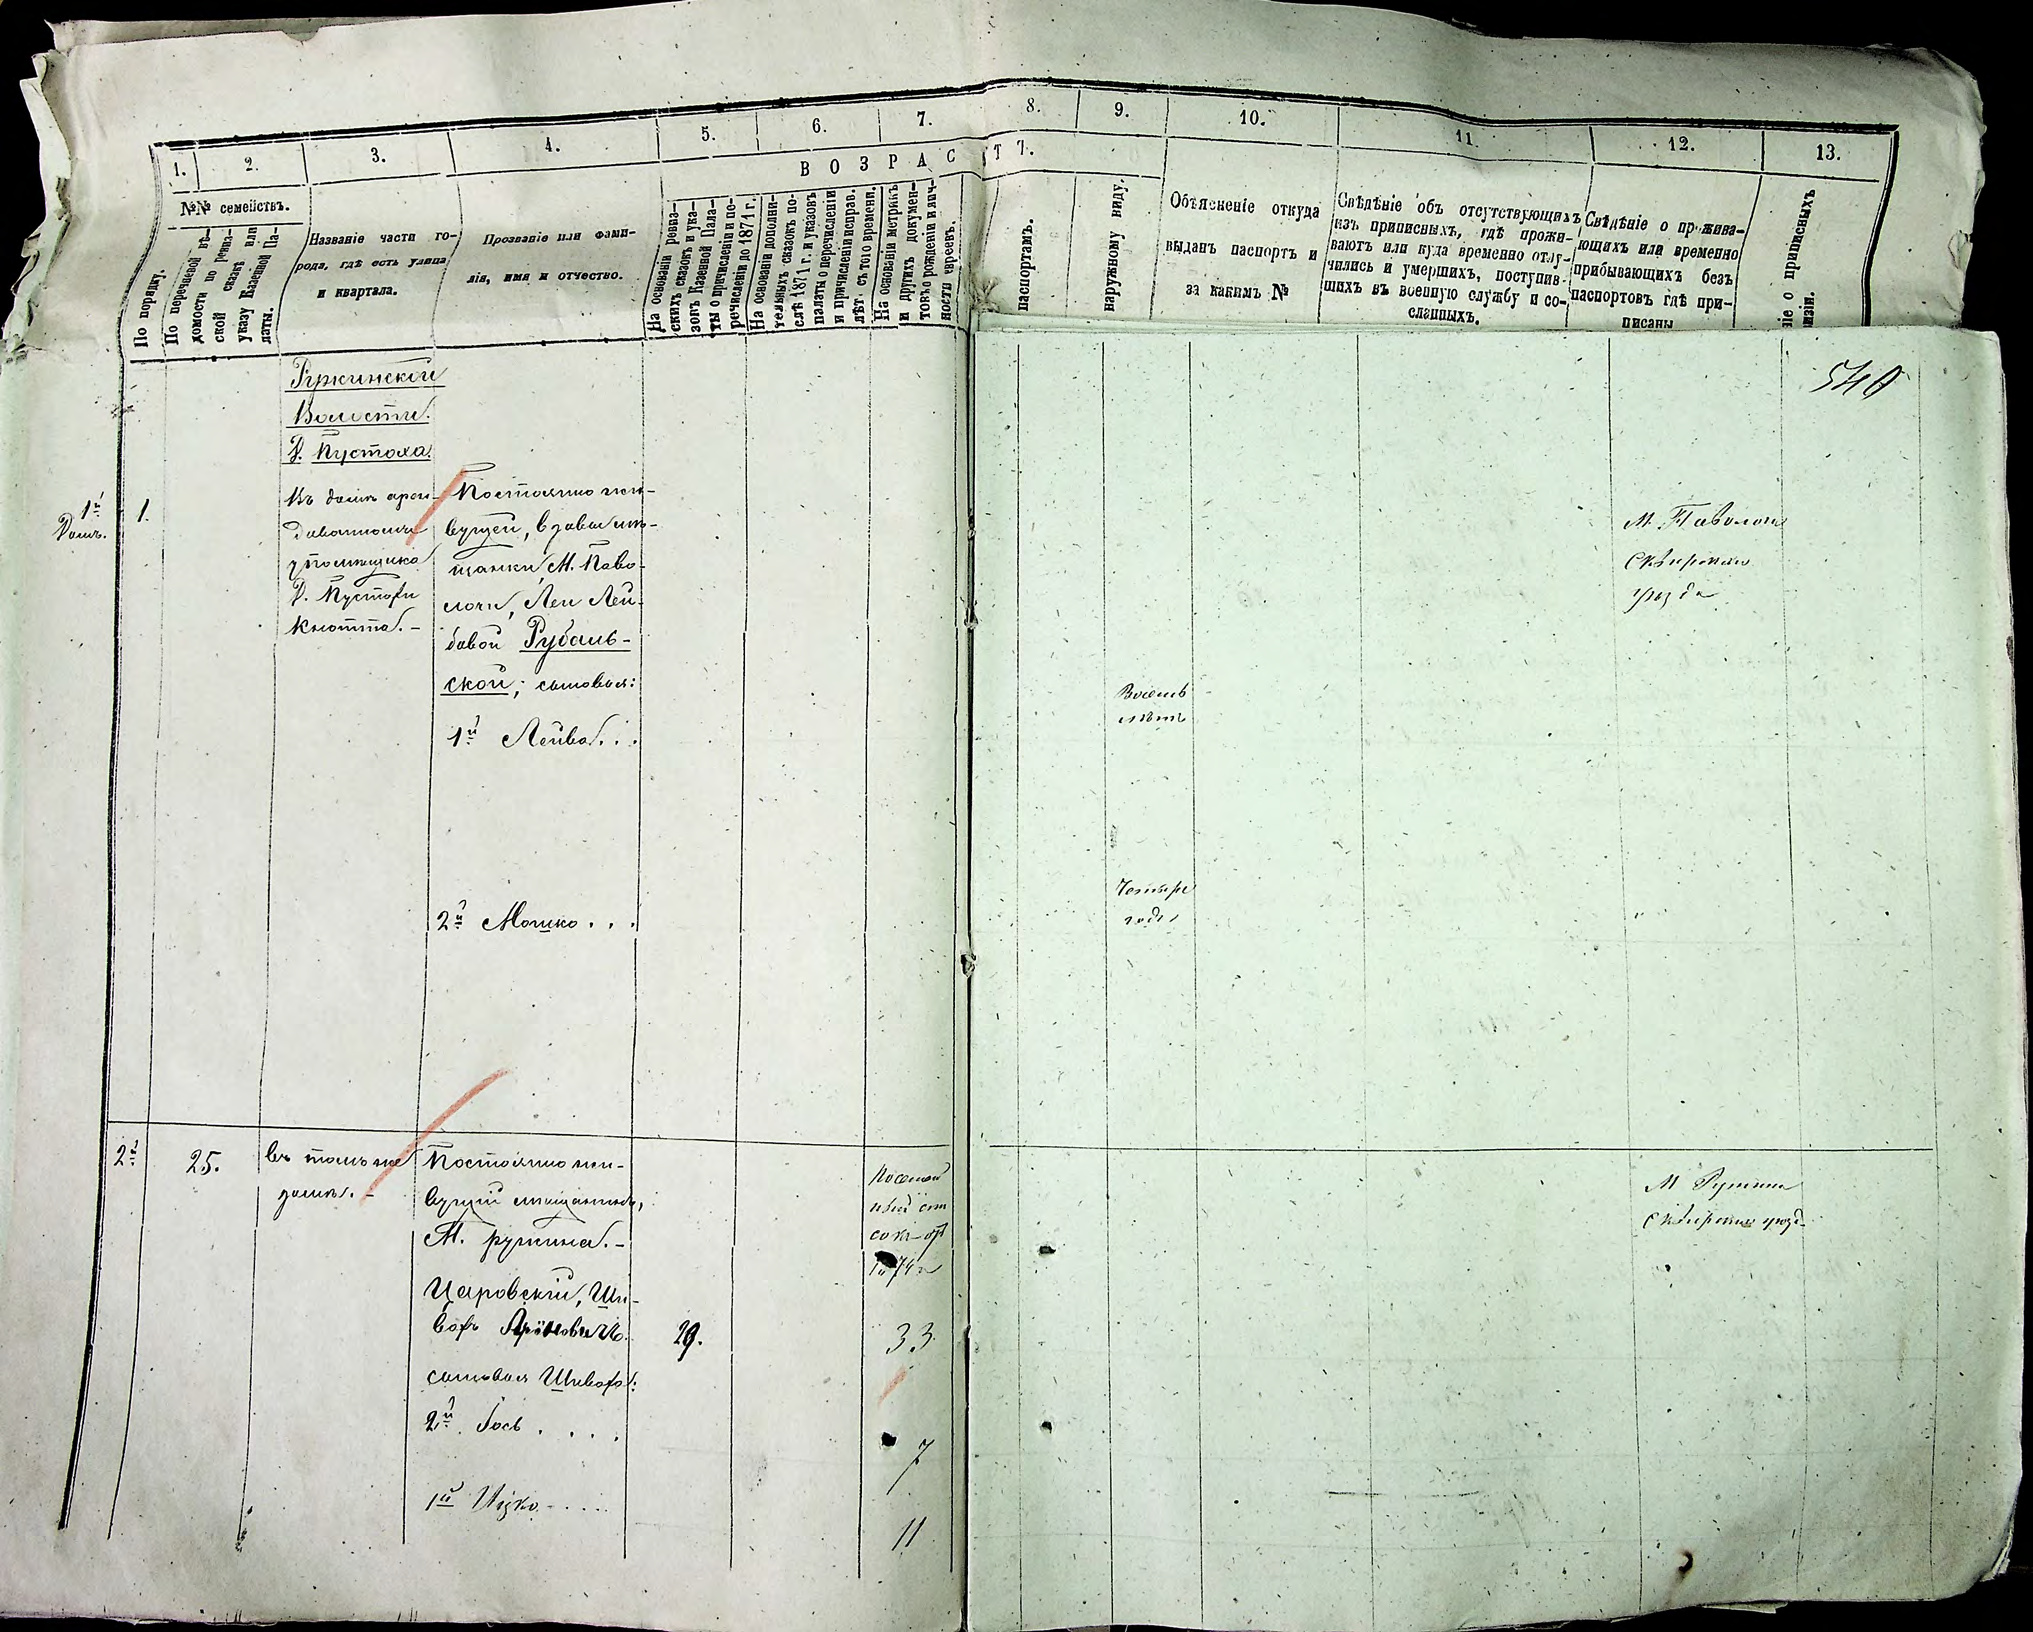 1.
2.
3.
4.
5.
6.
7.
8.
9.
10.
11.
12.
13.
ВОЗРАСТ
7.
№№ семействъ.
По порядку.
По перечневой вѣ-
домости по ревиз-
ской сказкѣ или
указу Казенной Па-
латы.
Названіе части го-
рода, гдѣ есть улица
и квартала.
Прозваніе или фами-
лія, имя и отчество.
На основаніи реви-
скихъ сказокъ и ука-
зовъ Казенной Пала-
ты о причисленіи и пе-
речисленіи до 1871 г.
На основаніи дополни-
тельныхъ сказокъ по-
слѣ 1871 г. и указовъ
палаты о перечисленіи
и причисленіи исправ.
лѣт. съ того времени.
На основаніи метрикъ
и другихъ докумен-
товъ о рожденіи и лич-
ности евреевъ.
паспортамъ.
наружному виду.
Объясненіе откуда
выданъ паспортъ и
за какимъ №
Свѣдѣніе объ отсутствующихъ
изъ приписныхъ, гдѣ прожи-
ваютъ или куда временно отлу-
чились и умершихъ, поступив-
шихъ въ военную службу и со-
сланныхъ.
Свѣдѣніе о прожива-
ющихъ или временно
прибывающихъ безъ
паспортовъ гдѣ при-
писаны
ніе о приписныхъ
визіи.
540
Ружинской
Волости.
Д. Пустоха.
1й
Домъ.
1.
Въ домѣ арен-
дованномъ
у помещика
Д. Пустохи
Кнотта. -
Постоянно жи-
вущей, вдовы мѣ-
щанки, М. Паво-
лочи, Леи Лей-
бовой Рубаль-
ской; сыновья:
1й Лейба . . .
Восемь
лѣтъ
М. Паволочи
Сквирскаго
уѣзда
2й Мошко . . .
Четыре
года
"
2й
25.
въ томъ же
домѣ. -
Постоянно жи-
вущій мѣщанинъ,
М. Ружина. -
Царовскій, Ши-
29.
33
сыновья
2й Іось . . . .
7
1й Ицко - . . .
11
М Ружина
Сквирскаго уѣзд-